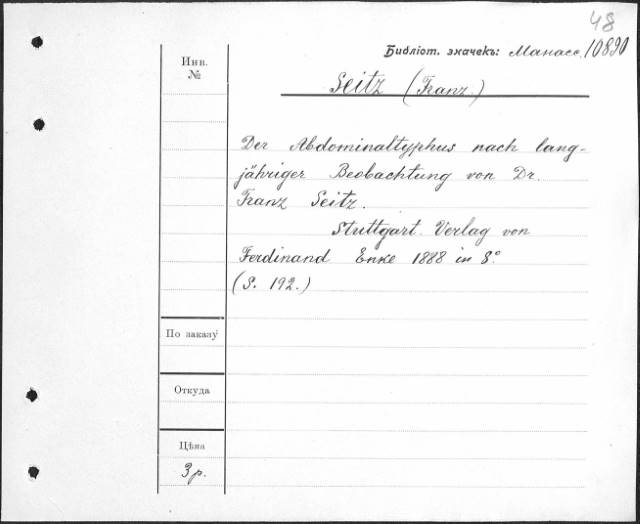 48
Библіот. значекъ: Манасс. 10890
Инв.
№
Seitz (Franz.)
Der Abdominaltyphus nach lang-
jähriger Beobachtung von Dr.
Franz Seitz.
Stuttgart. Verlag von
Ferdinand Enke 1888 in 8°
(S. 192.)
По заказу
Откуда
Цѣна
3 р.